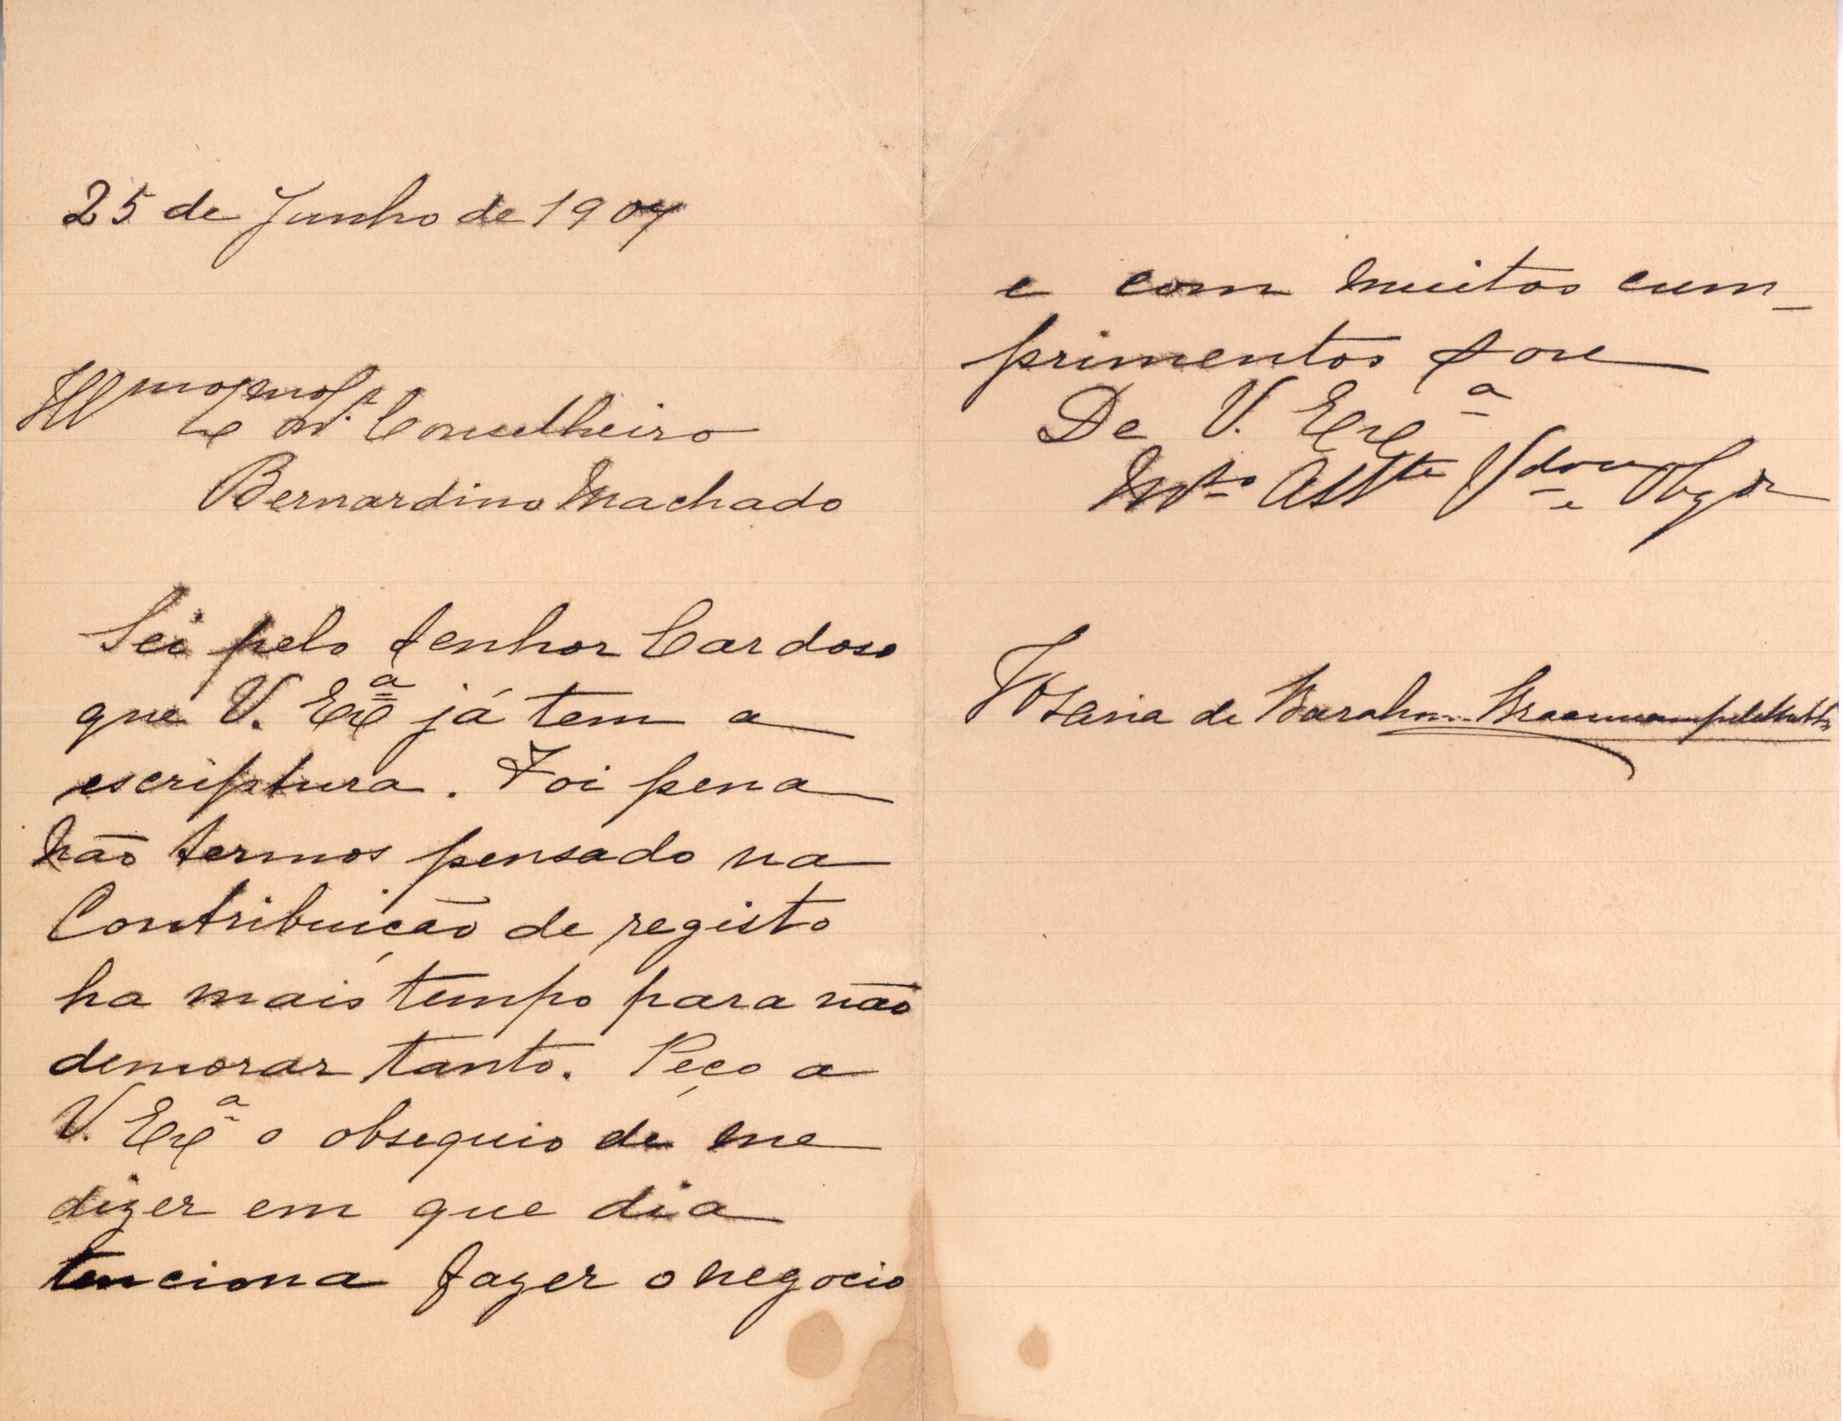 25 de Junho de 1907
Illmo Exmo Sr. Conselheiro
Bernardino Machado
Sei pelo senhor Cardoso
que V. Exª já tem a
escriptura. Foi pena
não termos pensado na
Contribuição de registo
ha mais tempo para não
demorar tanto. Peço a
V. Exª o obsequio de me
dizer em que dia
tenciona fazer o negocio
e com muitos cum-
primentos sou
De V. Exª
Mto Attta Vdora e Obgda
Maria de Barahona